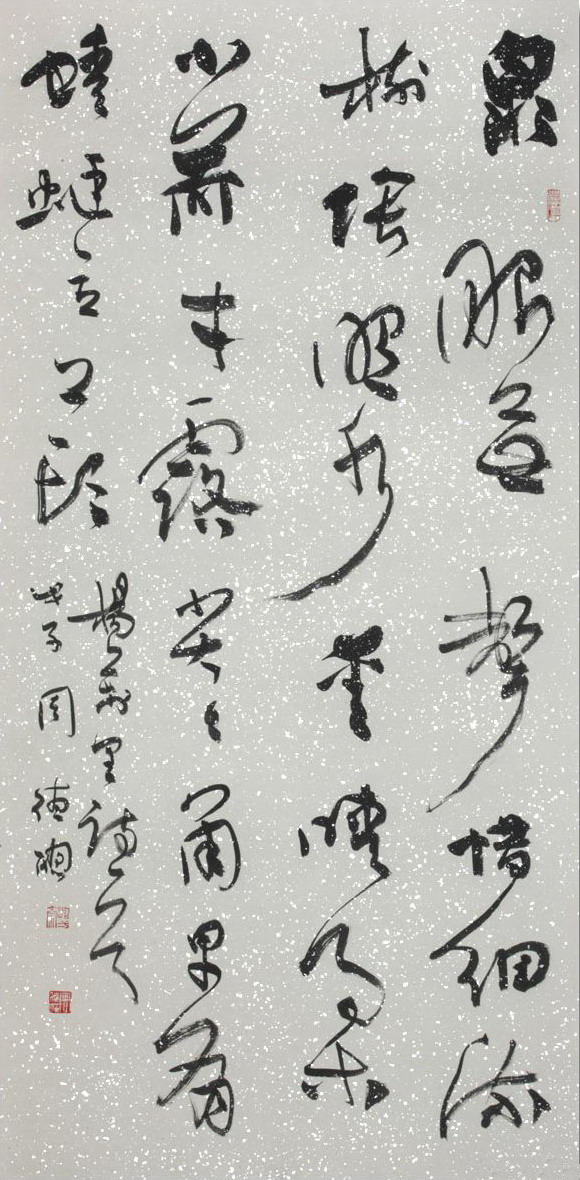 泉眼無聲惜細流
樹陰照水愛晴柔
小荷才露尖々角早有
蜻蜓立上頭
楊萬里詩一首
子周德